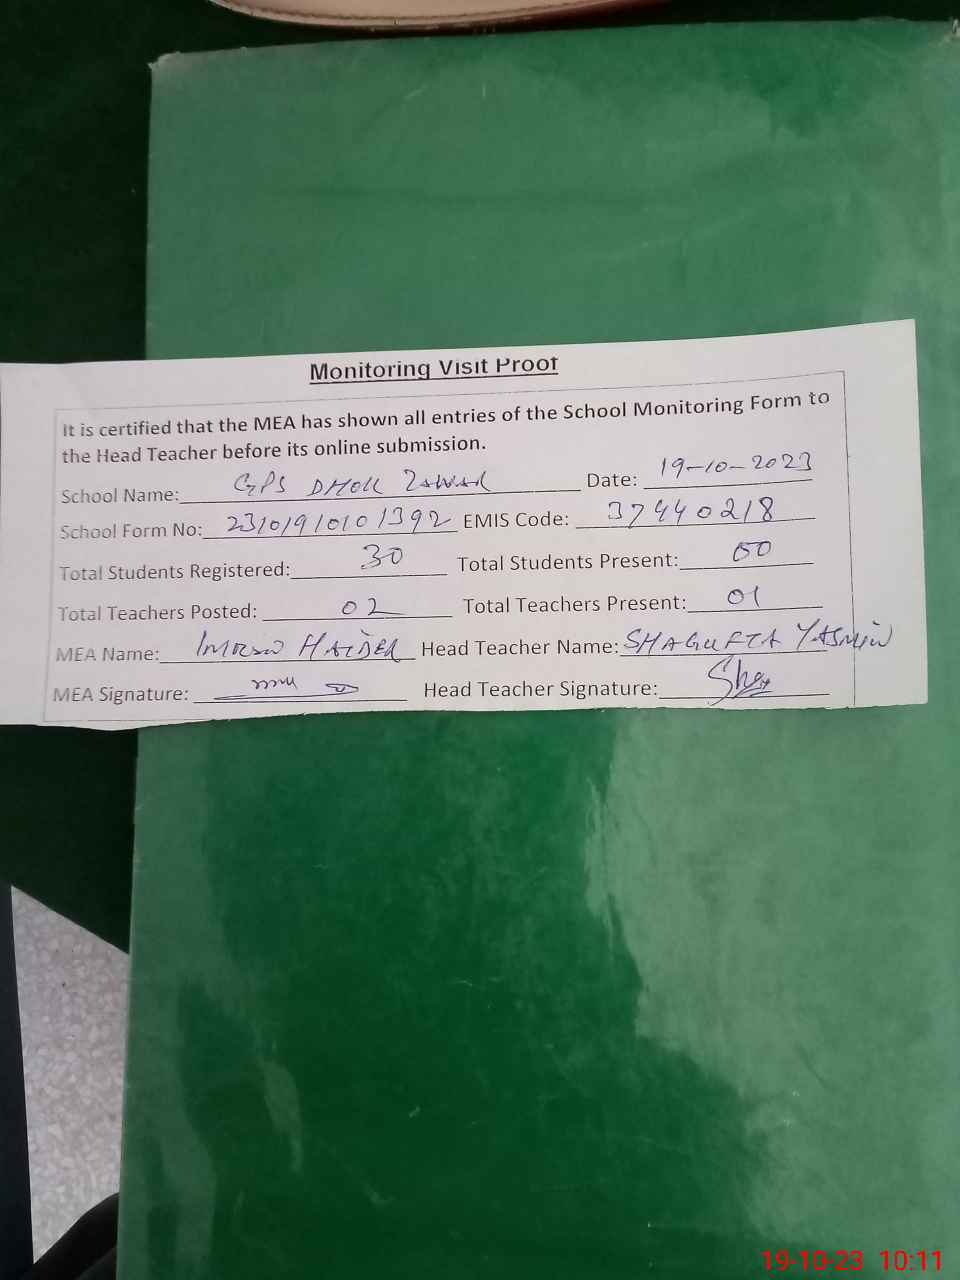 Monitoring Visit Proof
It is certified that the MEA has shown all entries of the School Monitoring Form to
the Head Teacher before its online submission.
School Name: GPS DHOK ZAWAR Date: 19-10-2023
School Form No: 2310191010 1392 EMIS Code: 37440218
Total Students Registered: 30 Total Students Present: 00
Total Teachers Posted: 02 Total Teachers Present: 01
MEA Name: IMRAN HAIDER Head Teacher Name: SHAGUFTA YASMIN
MEA Signature: Head Teacher Signature:
19-10-23 10:11